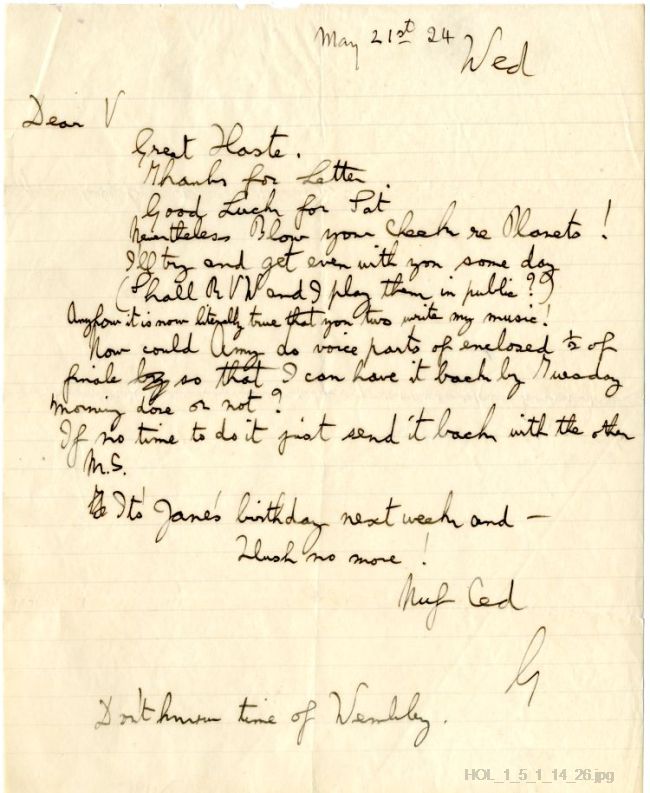 May 21st 24
Wed
Dear V
Great Haste.
Thanks for Letter.
Good Luck for Sat
Nevertheless Blow your cheek re Planets!
I'll try and get even with you some day
(Shall RVW and I play them in public?)
Anyhow it is now literally true that you two write my music!
Now could Amy do voice parts of enclosed ½ of
finale by so that I can have it back by Tuesday
morning done or not?
If no time to do it just send it back with the other
M.S.
It's Jane's birthday next week and —
Hush no more!
Nuf Ced
G
Don't know time of Wembley.
HOL_1_5_1_14_26.jpg